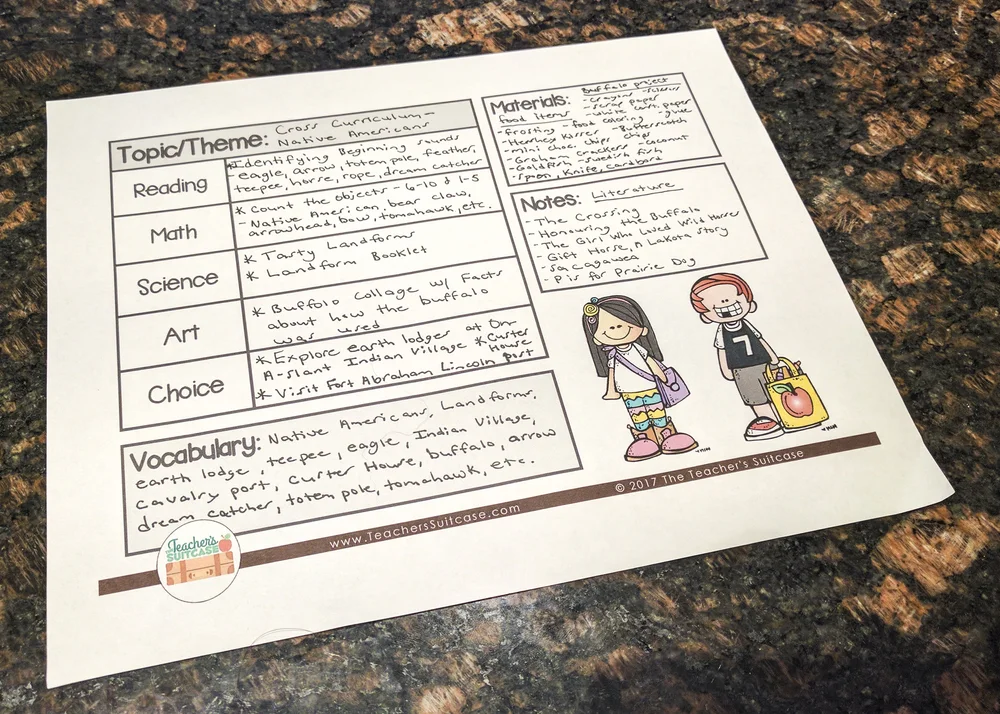 Topic/Theme: Cross Curriculum -
Native Americans
Reading
*Identifying Beginning sounds
- eagle, arrow, totem pole, feather,
teepee, horse, rope, dream catcher
Math
* Count the objects - 6-10 & 1-5
- Native American, bear claw,
arrowhead, bow, tomahawk, etc.
Science
* Tasty Landforms
* Landform Booklet
Art
* Buffalo Collage w/ Facts
about how the buffalo
was used
Choice
* Explore earth lodges at On-
A-slant Indian Village * Custer
House
* Visit Fort Abraham Lincoln Post
Vocabulary: Native Americans, Landforms,
earth lodge, teepee, eagle, Indian Village,
cavalry post, Custer House, buffalo, arrow
dream catcher, totem pole, tomahawk, etc.
Materials: Buffalo project
- crayons - scissors
food items - scrap paper
- white const. paper
- frosting - food coloring - glue
- Hershey Kisses - Butterscotch
- mini choc. chips chips
- Graham crackers - coconut
- Goldfish - Swedish fish
- Spoon, Knife, cardboard
Notes: Literature
- The Crossing
- Honouring the Buffalo
- The Girl Who Lived Wild Horses
- Gift Horse, A Lakota Story
- Sacagawea
- P is for Prairie Dog
7
Teacher's
SUITCASE
www.TeachersSuitcase.com
© 2017 The Teacher's Suitcase